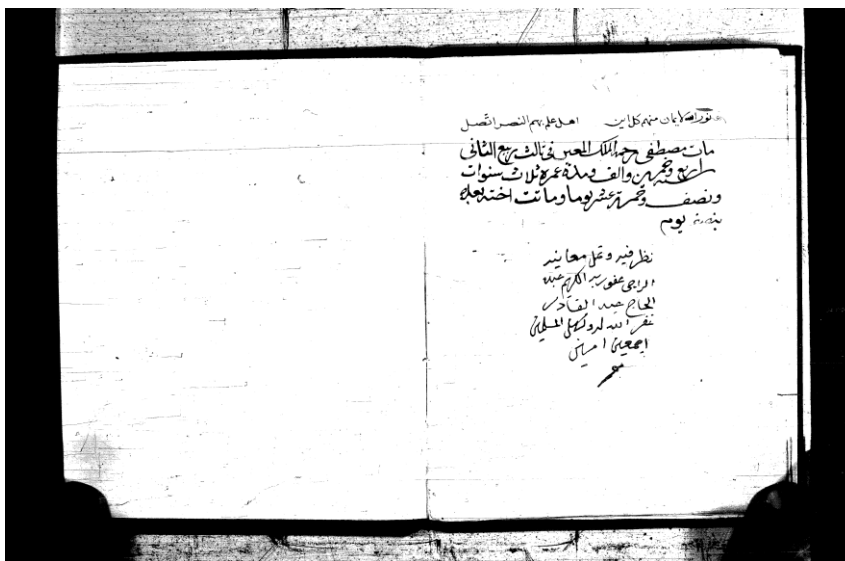 نور الايمان منهم كل اين اهل علم بهم النصر اتصل
مات مصطفى رحمه الملك المعين في ثالث ربيع الثاني
سنة اربع وخمسين والف ومدة عمره ثلاث سنوات
ونصف وخمسة عشر يوما وماتت اخته بعده
يوم
نظر فيه وتمل معانيه
الراجي عفو ربه الكريم عبده
الحاج عبد القادر
غفر الله له ولكل المسلمين
اجمعين امين